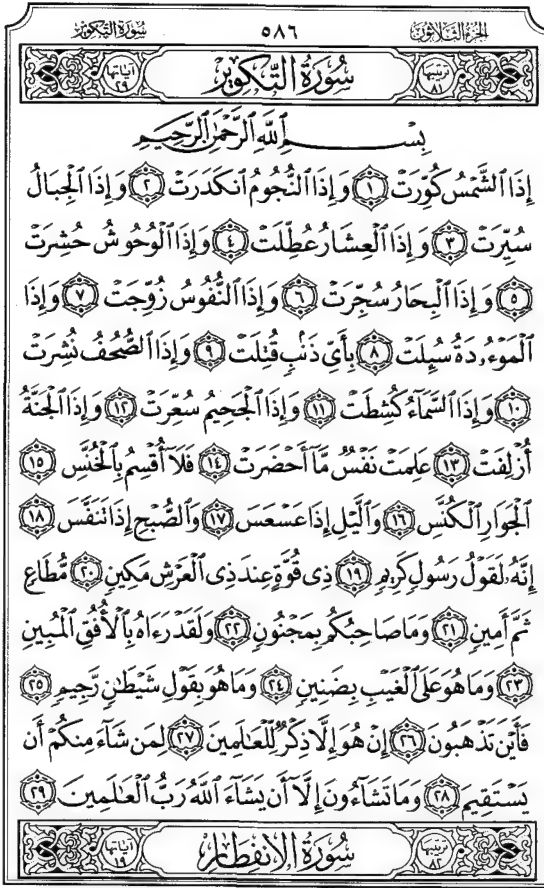 سُورَةُ التَّكْوِيرِ ٥٨٦ الجزءُ الثَّلاثُونَ
آيَاتُهَا ٢٩ سُورَةُ التَّكْوِيرِ تَرْتِيبُهَا ٨١
بِسْمِ ٱللَّهِ ٱلرَّحْمَٰنِ ٱلرَّحِيمِ
إِذَا ٱلشَّمْسُ كُوِّرَتْ ١ وَإِذَا ٱلنُّجُومُ ٱنكَدَرَتْ ٢ وَإِذَا ٱلْجِبَالُ
سُيِّرَتْ ٣ وَإِذَا ٱلْعِشَارُ عُطِّلَتْ ٤ وَإِذَا ٱلْوُحُوشُ حُشِرَتْ
٥ وَإِذَا ٱلْبِحَارُ سُجِّرَتْ ٦ وَإِذَا ٱلنُّفُوسُ زُوِّجَتْ ٧ وَإِذَا
ٱلْمَوْءُۥدَةُ سُئِلَتْ ٨ بِأَىِّ ذَنۢبٍ قُتِلَتْ ٩ وَإِذَا ٱلصُّحُفُ نُشِرَتْ
١٠ وَإِذَا ٱلسَّمَآءُ كُشِطَتْ ١١ وَإِذَا ٱلْجَحِيمُ سُعِّرَتْ ١٢ وَإِذَا ٱلْجَنَّةُ
أُزْلِفَتْ ١٣ عَلِمَتْ نَفْسٌ مَّآ أَحْضَرَتْ ١٤ فَلَآ أُقْسِمُ بِٱلْخُنَّسِ ١٥
ٱلْجَوَارِ ٱلْكُنَّسِ ١٦ وَٱلَّيْلِ إِذَا عَسْعَسَ ١٧ وَٱلصُّبْحِ إِذَا تَنَفَّسَ ١٨
إِنَّهُۥ لَقَوْلُ رَسُولٍ كَرِيمٍ ١٩ ذِى قُوَّةٍ عِندَ ذِى ٱلْعَرْشِ مَكِينٍ ٢٠ مُّطَاعٍ
ثَمَّ أَمِينٍ ٢١ وَمَا صَاحِبُكُم بِمَجْنُونٍ ٢٢ وَلَقَدْ رَءَاهُ بِٱلْأُفُقِ ٱلْمُبِينِ
٢٣ وَمَا هُوَ عَلَى ٱلْغَيْبِ بِضَنِينٍ ٢٤ وَمَا هُوَ بِقَوْلِ شَيْطَٰنٍ رَّجِيمٍ ٢٥
فَأَيْنَ تَذْهَبُونَ ٢٦ إِنْ هُوَ إِلَّا ذِكْرٌ لِّلْعَٰلَمِينَ ٢٧ لِمَن شَآءَ مِنكُمْ أَن
يَسْتَقِيمَ ٢٨ وَمَا تَشَآءُونَ إِلَّآ أَن يَشَآءَ ٱللَّهُ رَبُّ ٱلْعَٰلَمِينَ ٢٩
آيَاتُهَا ١٩ سُورَةُ الانفِطَارِ تَرْتِيبُهَا ٨٢